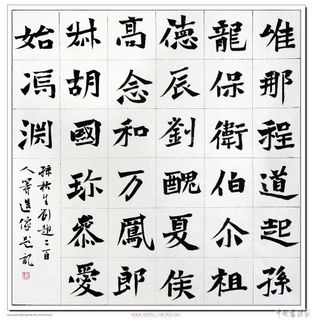 唯那程道起孫
龍保衛伯尒祖
德辰劉醜夏侯
高念和万鳳郎
胡國珎恭愛
始馮淵
孫秋生劉起二百
人等造像記